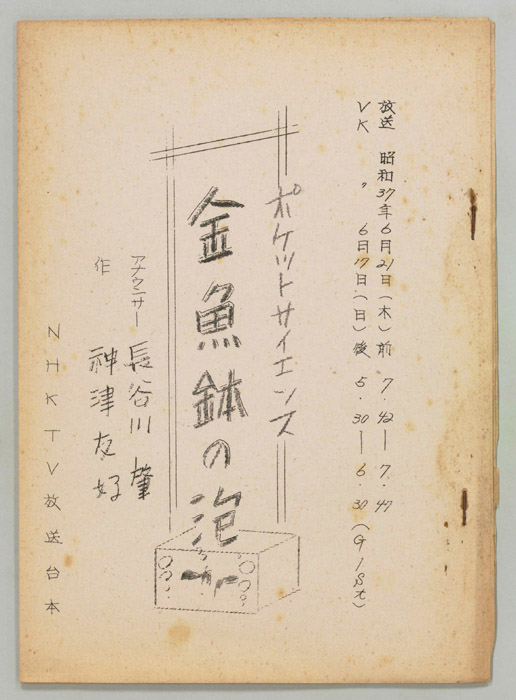 放送 昭和37年6月21日(木)前 7.42―7.47
VK 〃 6月17日(日)後 5.30―6.30(G1St)
ポケットサイエンス
金魚鉢の泡
アナウンサー 長谷川肇
作 神津友好
NHKTV放送台本